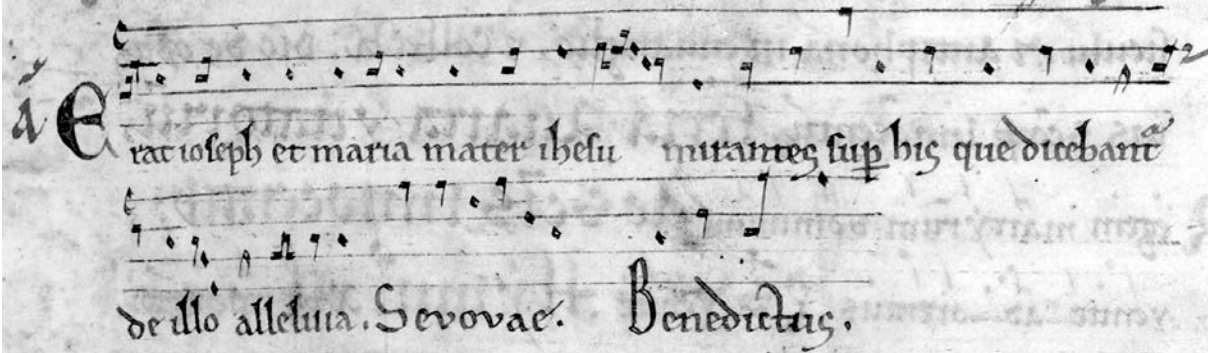 a Erat ioseph et maria mater ihesu mirantes sup his que dicebantᷓ
de illo alleluia. Sevovae. Benedictus.